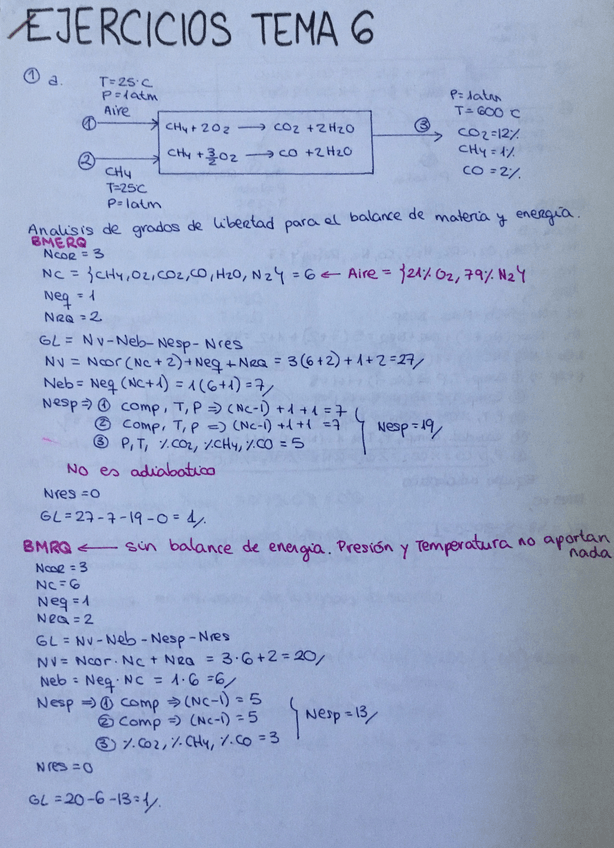 EJERCICIOS TEMA 6
① a. T=25ºC
P=1atm
Aire
①
②
CH4+2O2 → CO2+2H2O
CH4+3/2O2 → CO+2H2O
CH4
T=25ºC
P=1atm
③
P=1atm
T=600ºC
CO2=12%
CH4=1%
CO=2%
Analisis de grados de libertad para el balance de materia y energía.
BMERQ
Ncor=3
Nc = {CH4,O2,CO2,CO,H2O,N2} = 6 ← Aire = {21% O2, 79% N2}
Neq=1
NRQ=2
GL = Nv-Neb-Nesp-Nres
Nv = Ncor(Nc+2)+Neq+NRQ = 3(6+2)+1+2=27/
Neb = Neq(Nc+1)=1(6+1)=7/
Nesp ⇒ ① comp, T, P ⇒ (Nc-1)+1+1=7
② comp, T, P ⇒ (Nc-1)+1+1=7
③ P,T, %CO2, %CH4, %CO = 5
Nesp=19/
No es adiabatico
Nres=0
GL=27-7-19-0=1/.
BMRQ ← sin balance de energia. Presión y Temperatura no aportan
nada
Ncor=3
Nc=6
Neq=1
NRQ=2
GL=Nv-Neb-Nesp-Nres
Nv= Ncor·Nc + NRQ = 3·6+2=20/
Neb = Neq·Nc = 1·6 =6/
Nesp ⇒ ① comp ⇒ (Nc-1) = 5
② comp ⇒ (Nc-1) = 5
③ %CO2, %CH4, %CO = 3
Nesp=13/
Nres=0
GL=20-6-13=1/.